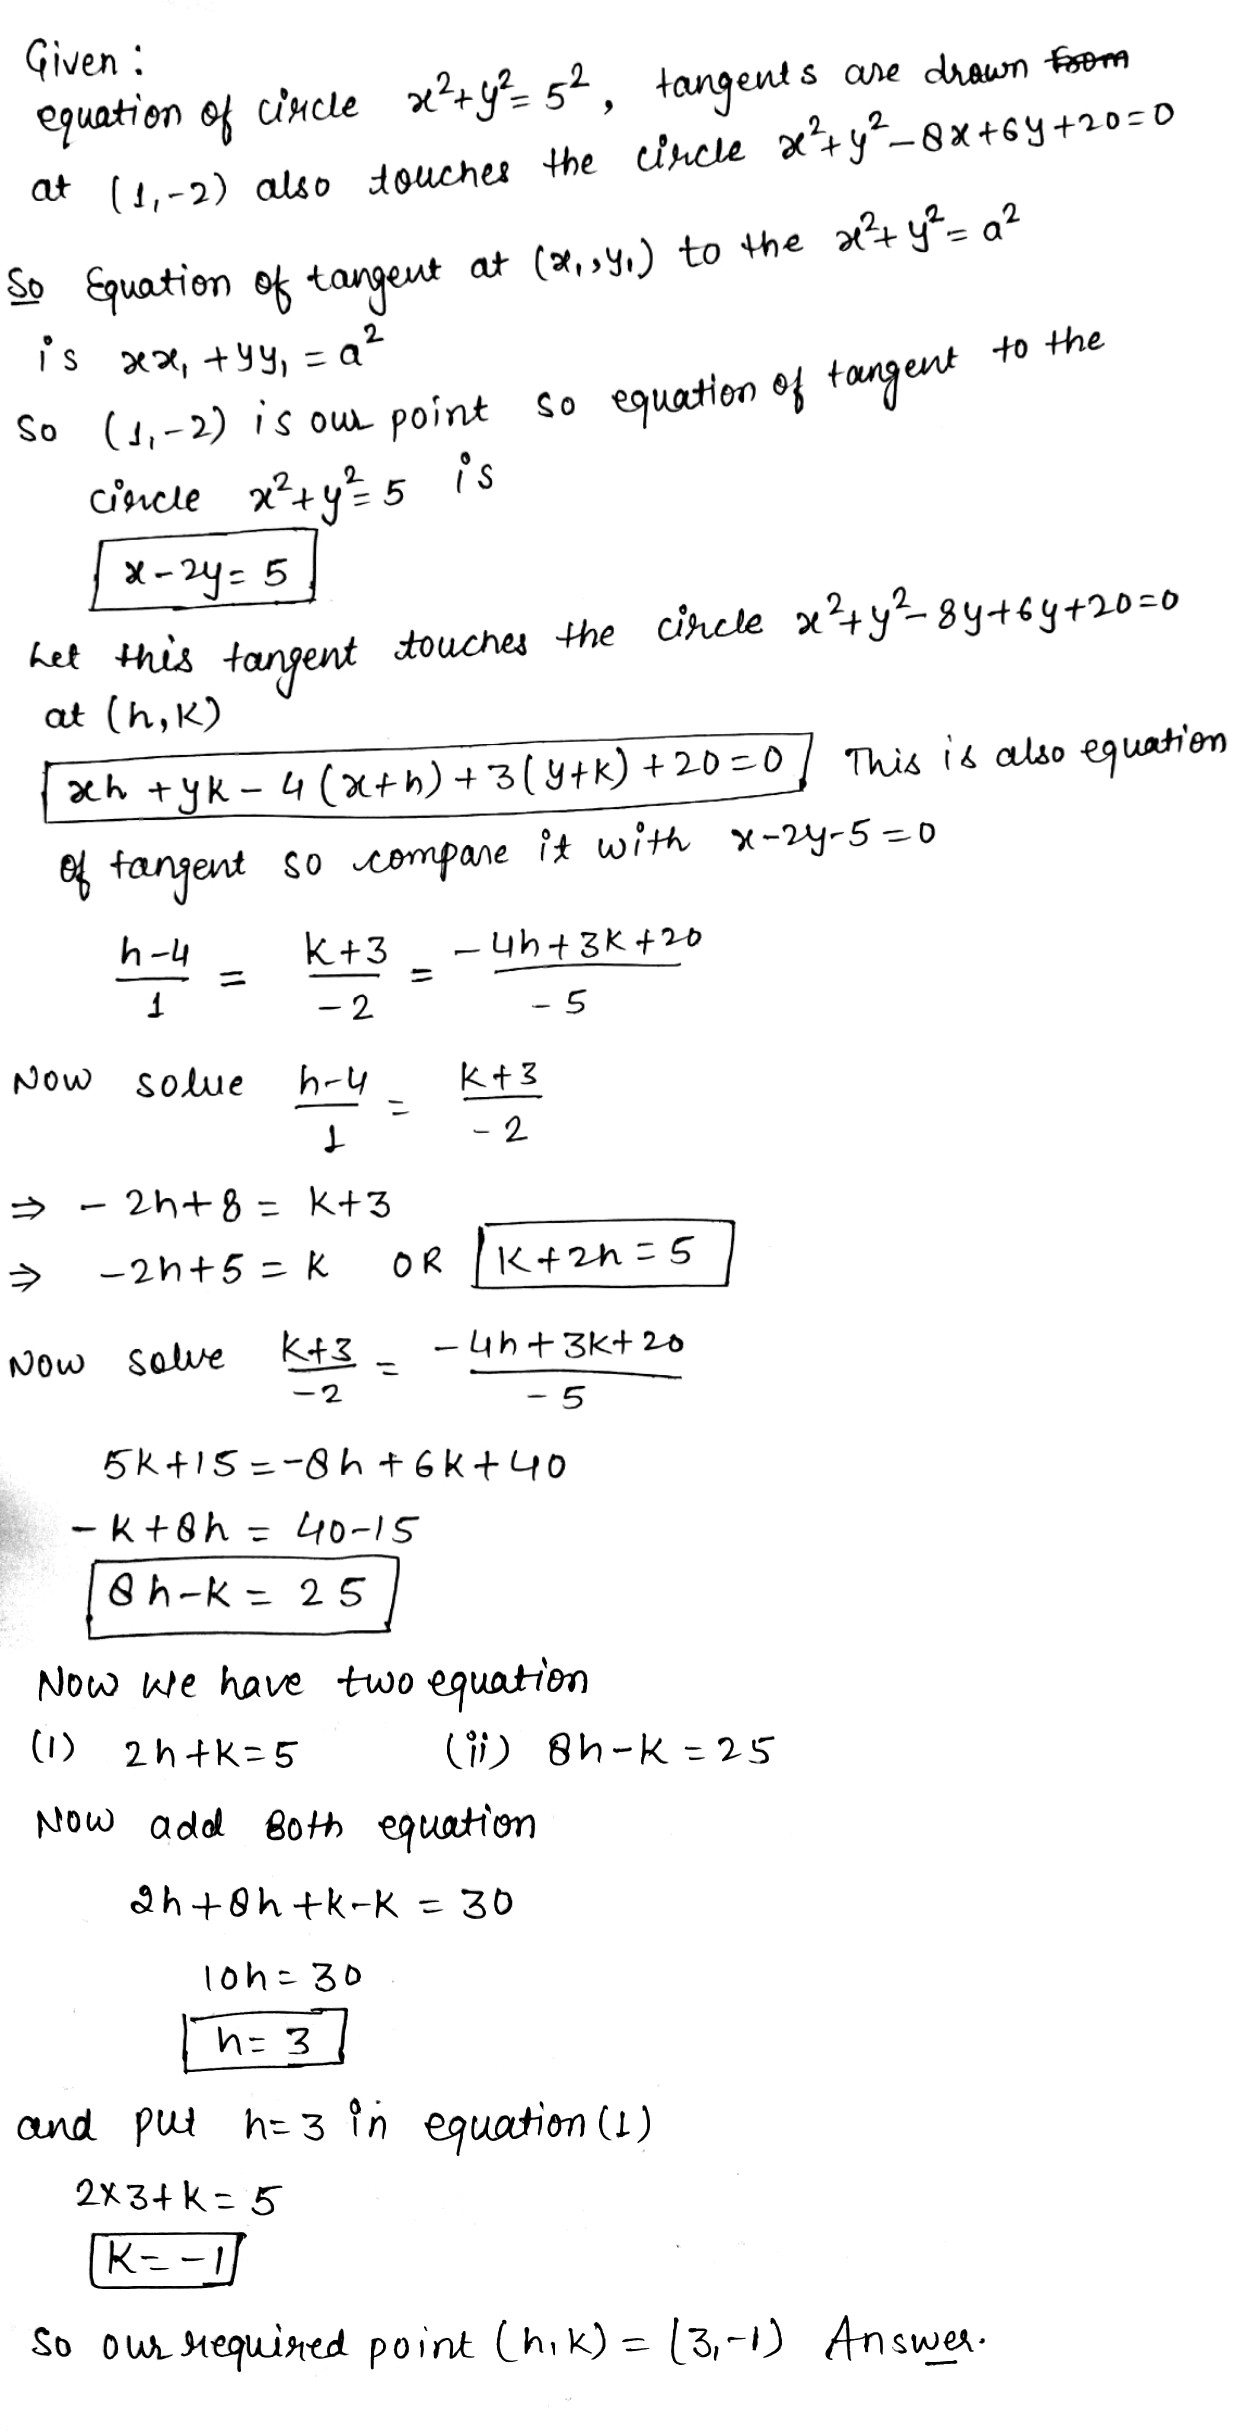 Given :
equation of circle x²+y²= 5², tangents are drawn from
at (1,-2) also touches the circle x²+y²-8x+6y+20=0
So Equation of tangent at (x₁,y₁) to the x²+y²=a²
is xx₁+yy₁=a²
so (1,-2) is our point so equation of tangent to the
circle x²+y²=5 is
x-2y=5
Let this tangent touches the circle x²+y²-8y+6y+20=0
at (h,K)
xh+yK-4(x+h)+3(y+K)+20=0 This is also equation
of tangent so compare it with x-2y-5=0
h-4/1 = K+3/-2 = -4h+3K+20/-5
Now solve h-4/1 = K+3/-2
⇒ -2h+8=K+3
⇒ -2h+5=K OR K+2h=5
Now solve K+3/-2 = -4h+3K+20/-5
5K+15=-8h+6K+40
-K+8h=40-15
8h-K=25
Now we have two equation
(1) 2h+K=5 (ii) 8h-K=25
Now add Both equation
2h+8h+K-K=30
10h=30
h=3
and put h=3 in equation (1)
2×3+K=5
K=-1
So our required point (h,K)=(3,-1) Answer.